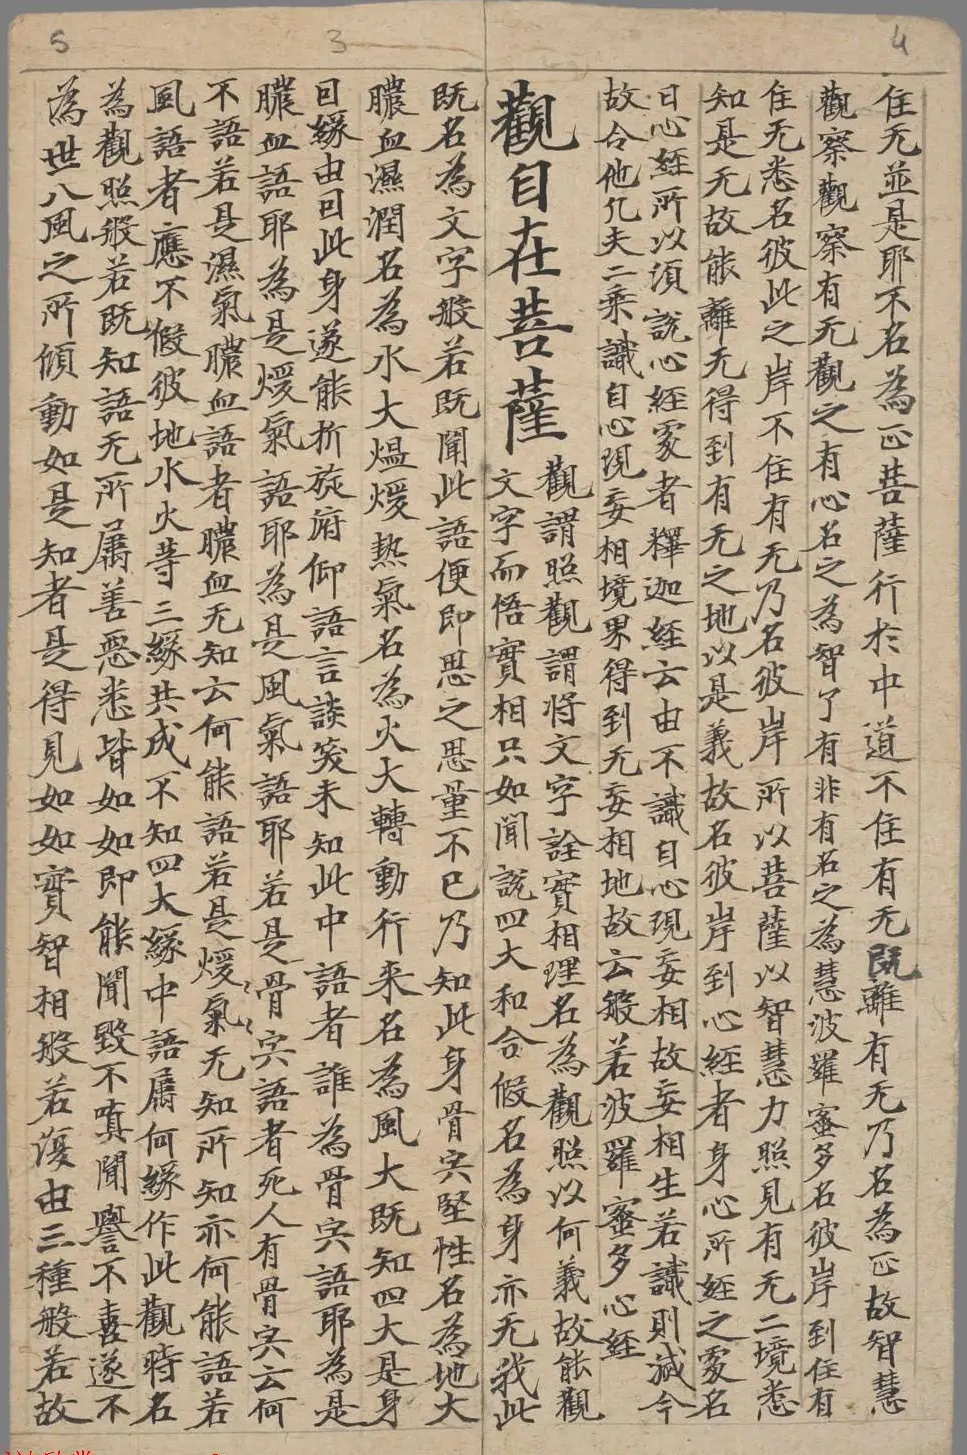 4
3
5
住无並是耶不名為正菩薩行於中道不住有无既離有无乃名為正故智慧
觀察觀察有无觀之有心名之為智了有非有名之為慧波羅蜜多名彼岸到住有
住无悉名彼此之岸不住有无乃名彼岸所以菩薩以智慧力照見有无二境悉
知是无故能離无得到有无之地以是義故名彼岸到心經者身心所經之處名
曰心經所以須說心經處者釋迦經云由不識自心現妄相故妄相生若識則滅今
故令他凡夫二乘識自心現妄相境界得到无妄相地故云般若波羅蜜多心經
觀自在菩薩
觀謂照觀謂將文字詮實相理名為觀照以何義故能觀
文字而悟實相只如聞說四大和合假名為身亦无我此
既名為文字般若既聞此語便即思之思量不已乃知此身骨宍堅性名為地大
膿血濕潤名為水大熅煖熱氣名為火大轉動行来名為風大既知四大是身
因緣由因此身遂能折旋俯仰語言談笑未知此中語者誰為骨宍語耶為是
膿血語耶為是煖氣語耶為是風氣語耶若是骨宍語者死人有骨宍云何
不語若是濕氣膿血語者膿血无知云何能語若是煖氣氣无知所知亦何能語若
風語者應不假彼地水火等三緣共成不知四大緣中語屬何緣作此觀時名
為觀照般若既知語无所屬善惡悉皆如如即能聞毀不嗔聞譽不喜遂不
為世八風之所傾動如是知者是得見如如實智相般若復由三種般若故